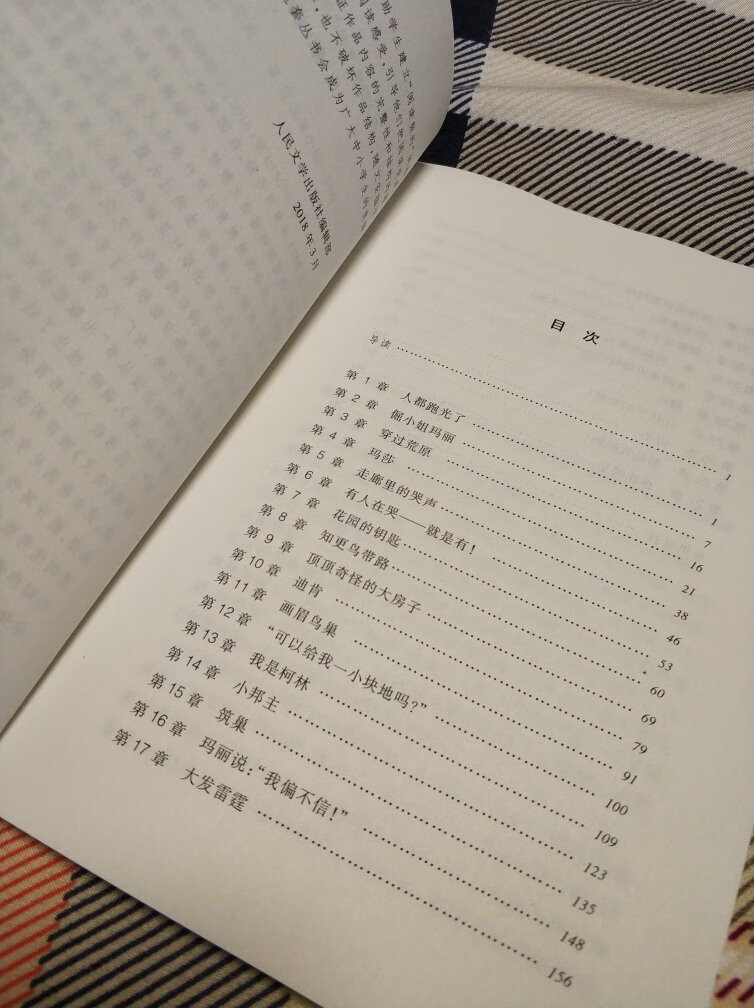 助学生建立“阅读
阅读感受，引导他们把阅读
证作品内容的完整性
，也不破坏作品结构，
套丛书会成为广大中小学生
人民文学出版社编辑部
2018年3月
目 次
导读 …… 1
第 1 章 人都跑光了 …… 1
第 2 章 倔小姐玛丽 …… 7
第 3 章 穿过荒原 …… 16
第 4 章 玛莎 …… 21
第 5 章 走廊里的哭声 …… 38
第 6 章 有人在哭——就是有！ …… 46
第 7 章 花园的钥匙 …… 53
第 8 章 知更鸟带路 …… 60
第 9 章 顶顶奇怪的大房子 …… 69
第 10 章 迪肯 …… 79
第 11 章 画眉鸟巢 …… 91
第 12 章 “可以给我一小块地吗？” …… 100
第 13 章 我是柯林 …… 109
第 14 章 小邦主 …… 123
第 15 章 筑巢 …… 135
第 16 章 玛丽说：“我偏不信！” …… 148
第 17 章 大发雷霆 …… 156